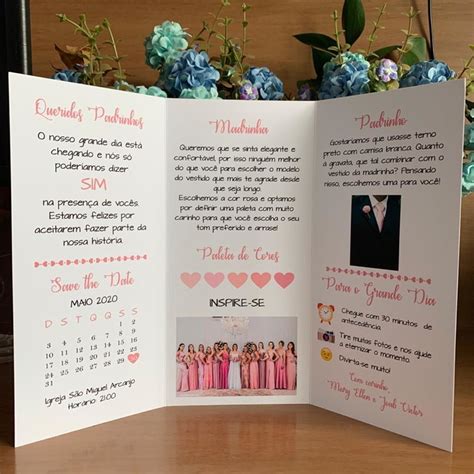 Queridos Padrinhos
O nosso grande dia está
chegando e nós só
poderíamos dizer
SIM
na presença de vocês.
Estamos felizes por
aceitarem fazer parte da
nossa história.
Save the Date
MAIO 2020
D S T Q Q S S
1 2
3 4 5 6 7 8 9
10 11 12 13 14 15 16
17 18 19 20 21 22 23
24 25 26 27 28 29 30
31
Igreja São Miguel Arcanjo
Horário 21:00
Madrinha
Queremos que se sinta elegante e
confortável, por isso ninguém melhor
do que você para escolher o modelo
do vestido que mais te agrade desde
que seja longo.
Escolhemos a cor rosa e optamos
por definir uma paleta com muito
carinho para que você escolha o seu
tom preferido e arrase!
Paleta de Cores
INSPIRE-SE
Padrinho
Gostaríamos que usasse terno
preto com camisa branca. Quanto
á gravata, que tal combinar com o
vestido da madrinha? Pensando
nisso, escolhemos uma para você!
Para o Grande Dia
Chegue com 30 minutos de
antecedência.
Tire muitas fotos e nos ajude
a eternizar o momento.
Divirta-se muito!
Com carinho,
Mary Ellen e Joab Victor